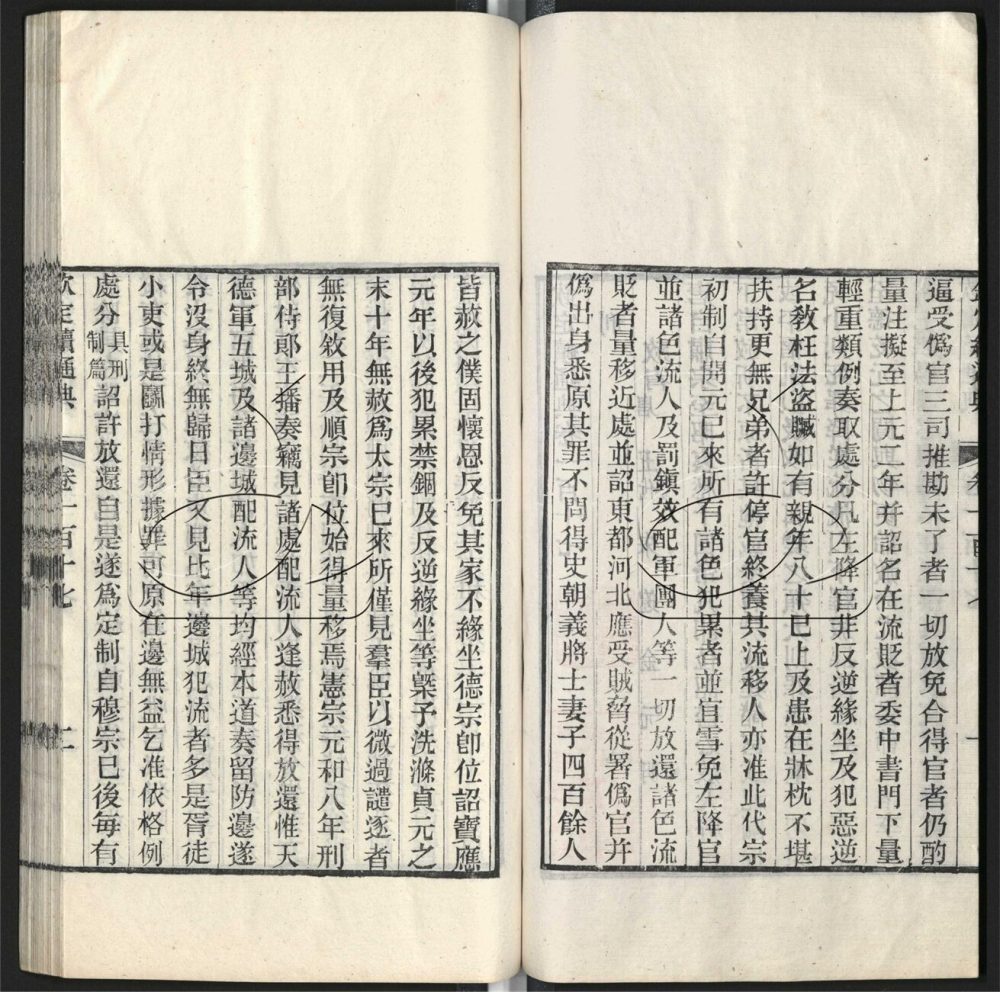 逼受僞官三司推勘未了者一切放免合得官者仍酌
量注擬至上元二年并詔名在流貶者委中書門下量
輕重類例奏取處分凡左降官非反逆緣坐及犯惡逆
名敎枉法盜贓如有親年八十已上及患在牀枕不堪
扶持更無兄弟者許停官終養其流移人亦准此代宗
初制自開元已來所有諸色犯累者並宜雪免左降官
並諸色流人及罰鎭效配軍團人等一切放還諸色流
貶者量移近處並詔東都河北應受賊脅從署僞官并
僞出身悉原其罪不問得史朝義將士妻子四百餘人
皆赦之僕固懷恩反免其家不緣坐德宗卽位詔寶應
元年以後犯累禁錮及反逆緣坐等槩予洗滌貞元之
末十年無赦爲太宗已來所僅見羣臣以微過譴逐者
無復敘用及順宗卽位始得量移焉憲宗元和八年刑
部侍郞王播奏竊見諸處配流人逢赦悉得放還惟天
德軍五城及諸邊城配流人等均經本道奏留防邊遂
令沒身終無歸日臣又見比年邊城犯流者多是胥徒
小吏或是鬭打情形據罪可原在邊無益乞准依格例
處分具刑制篇詔許放還自是遂爲定制自穆宗已後每有
欽定續通典 卷一百十七 二